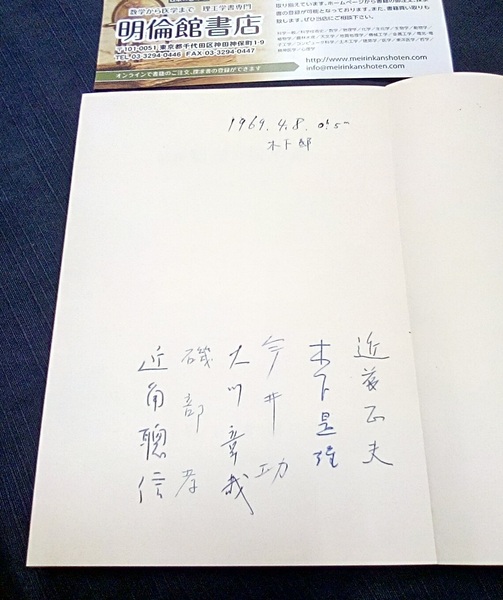 数学から医学まで 理工学書専門
明倫館書店
〒101-0051 東京都千代田区神田神保町1-9
TEL 03-3294-0446 FAX 03-3294-0447
オンラインで書籍のご注文、探求書の登録ができます
http://www.meirinkanshoten.com
info@meirinkanshoten.com
1969.4.8.
木下邸
近藤正夫
木下是雄
今井功
大川章哉
磯部孝
近角聰信